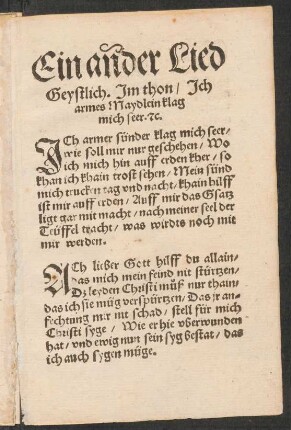 Ein ander Lied
Geystlich. Im thon / Ich
armes Maydlein klag
mich seer. ⁊c.
ICh armer sünder klag mich seer /
wie soll mir nur geschehen / Wo
ich mich hin auff erden kher / so
khan ich khain trost sehen / Mein sünd
mich trucken tag vnd nacht / khain hilff
ist mir auff erden / Auff mir das Gsatz
ligt gar mit macht / nach meiner seel der
Teüffel tracht / was wirdts noch mit
mir werden.
ACh lieber Gott hilff du allain /
das mich mein feind nit stürtzen /
Dz leyden Christi müß nur thain /
das ich sie müg verspürtzen / Das ir an-
fechtung mir nit schad / stell für mich
Christi syge / Wie er hie vberwunden
hat / vnd ewig nun sein syg bestat / das
ich auch sygen müge.